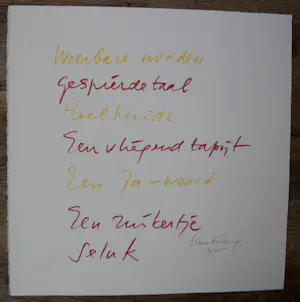 Weerbare woorden
gespierde taal
Koel huids
Een vliegend tapijt
Een Ja-woord
Een zuikertje
geluk